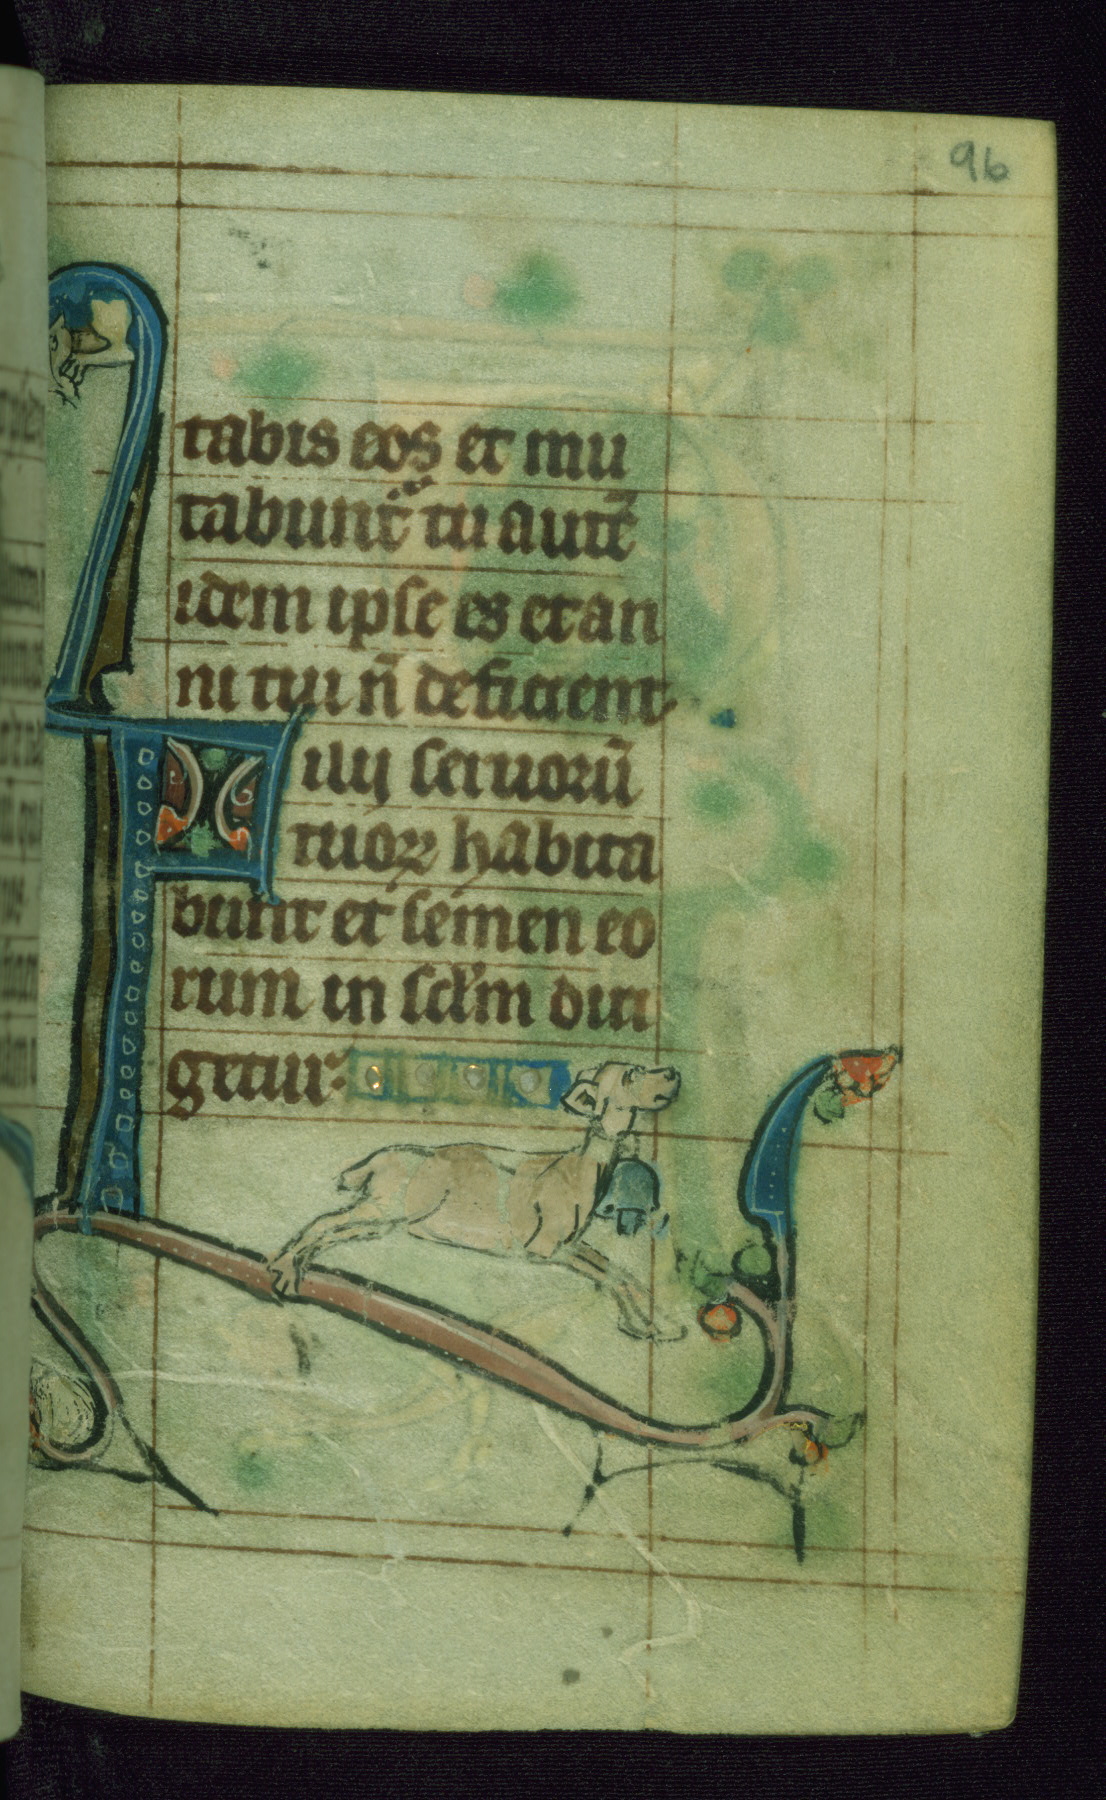 96
tabis eos et mu
tabunt̄ tu autē
idem ipse es et an
ni tui n̄ deficient
Filij seruorū
tuoꝝ habita
bunt et semen eo
rum in sc̄l'm diri
getur: